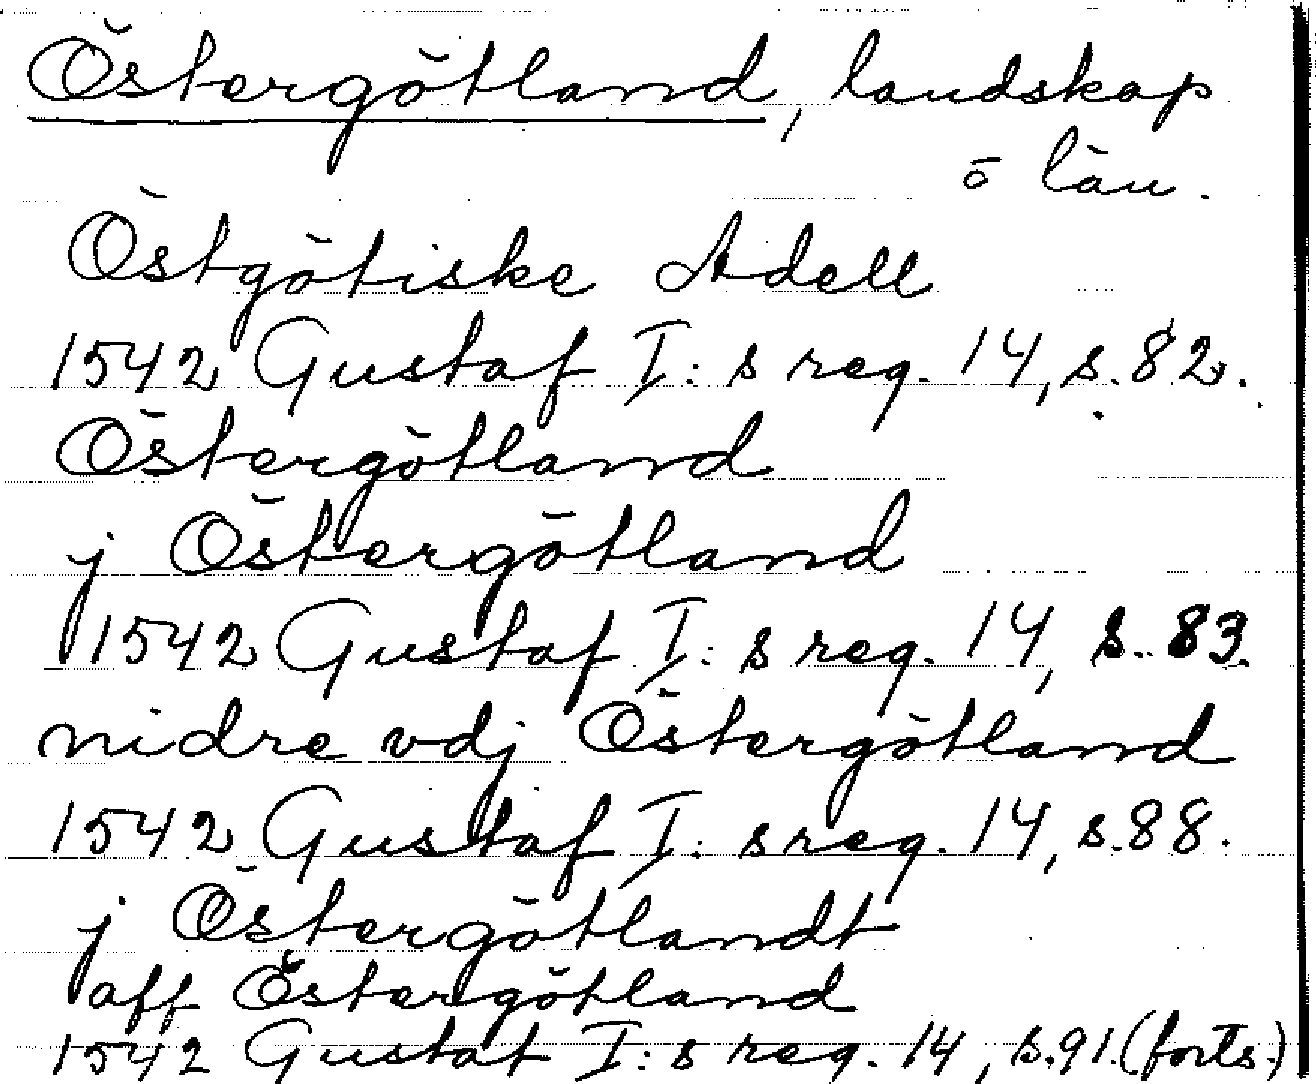 Östergötland, landskap
o län.
Östgötiske Adell
1542 Gustaf I:s reg. 14, s. 82.
Östergötland
j Östergötland
1542 Gustaf I:s reg. 14, s. 83.
nidre vdj Östergötland
1542 Gustaf I:s reg. 14, s. 88.
j Östergötlandt
aff Östergötland
1542 Gustaf I:s reg. 14, s. 91. (forts.)